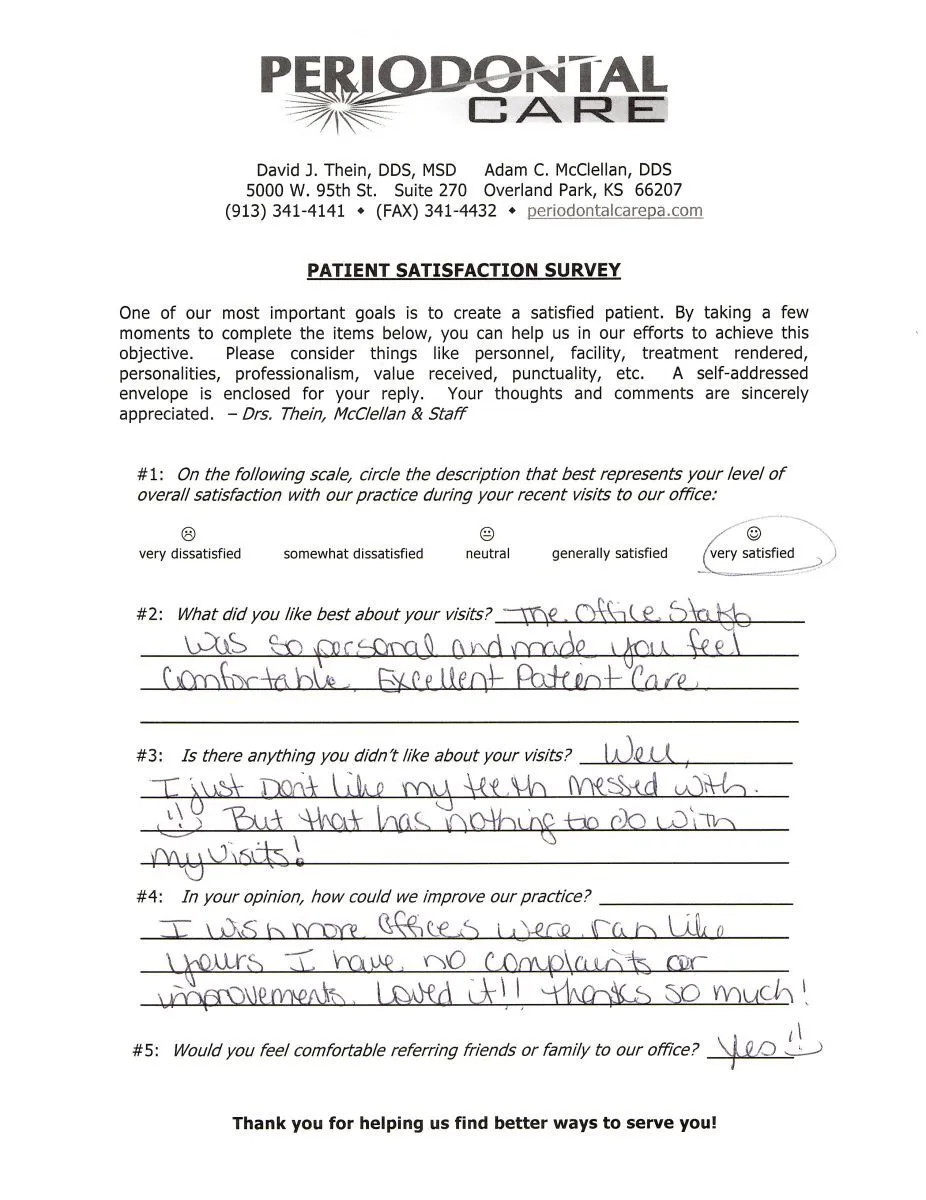 PERIODONTAL
CARE
David J. Thein, DDS, MSD Adam C. McClellan, DDS
5000 W. 95th St. Suite 270 Overland Park, KS 66207
(913) 341-4141 • (FAX) 341-4432 • periodontalcarepa.com
PATIENT SATISFACTION SURVEY
One of our most important goals is to create a satisfied patient. By taking a few
moments to complete the items below, you can help us in our efforts to achieve this
objective. Please consider things like personnel, facility, treatment rendered,
personalities, professionalism, value received, punctuality, etc. A self-addressed
envelope is enclosed for your reply. Your thoughts and comments are sincerely
appreciated. – Drs. Thein, McClellan & Staff
#1: On the following scale, circle the description that best represents your level of
overall satisfaction with our practice during your recent visits to our office:
very dissatisfied somewhat dissatisfied neutral generally satisfied very satisfied
#2: What did you like best about your visits? The Office Staff
was so personal and made you feel
Comfortable. Excellent Patient Care.
#3: Is there anything you didn't like about your visits? Well,
I just Don't like my teeth messed with.
But that has nothing to do with
my visits!
#4: In your opinion, how could we improve our practice?
I wish more Offices were ran like
yours I have no complaints or
improvements. Loved it!! thanks so much!
#5: Would you feel comfortable referring friends or family to our office? Yes
Thank you for helping us find better ways to serve you!